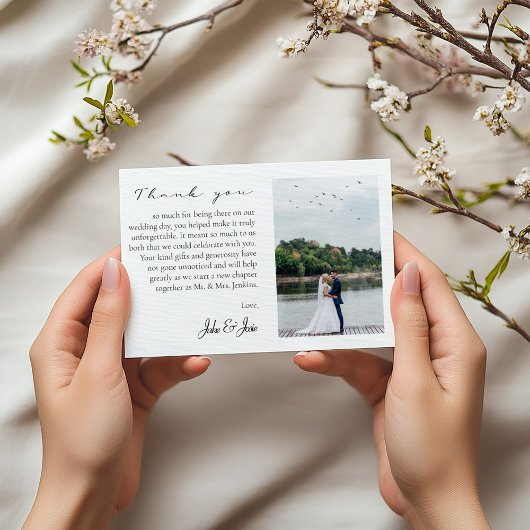 Thank you
so much for being there on our
wedding day, you helped make it truly
unforgettable. it meant so much to us
both that we could celebrate with you.
Your kind gifts and generosity have
not gone unnoticed and will help
greatly as we start a new chapter
together as Mr. & Mrs. Jenkins.
Love,
Jake & Josie